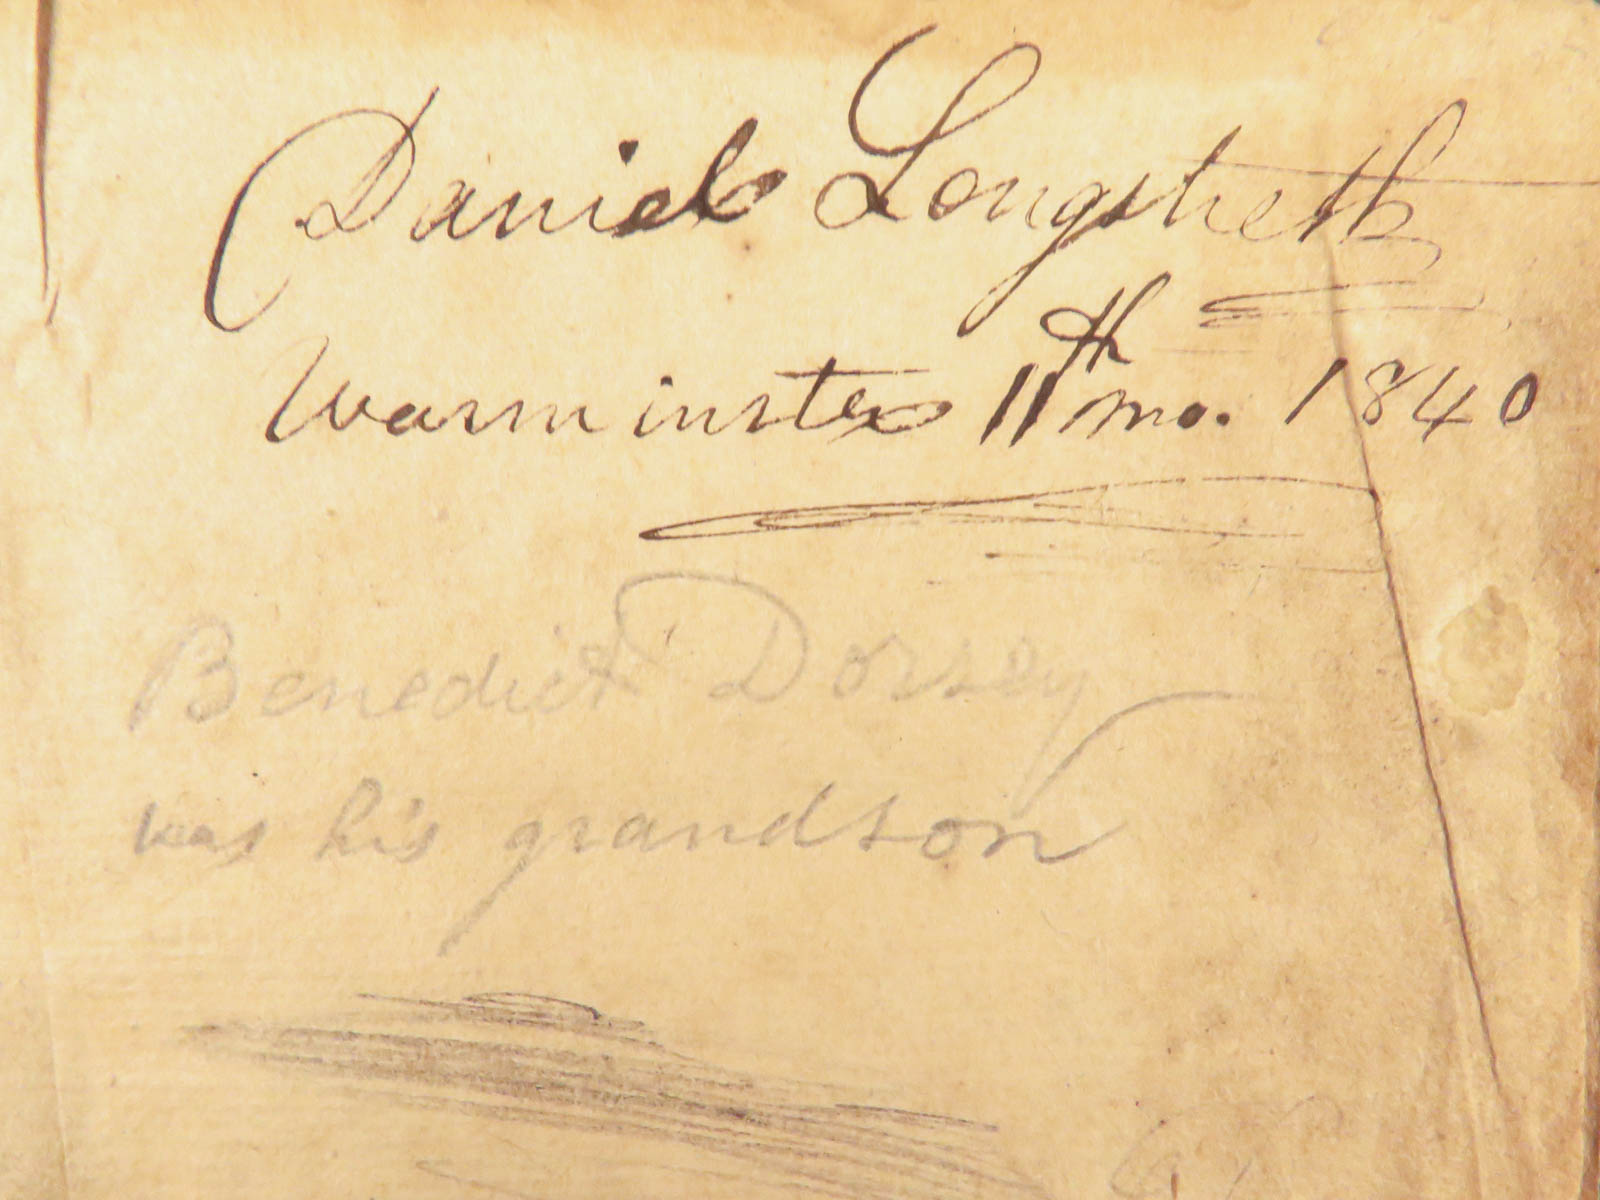 Daniel Longstreth
Warminster 11th mo. 1840
Benedict Dorsey
was his grandson